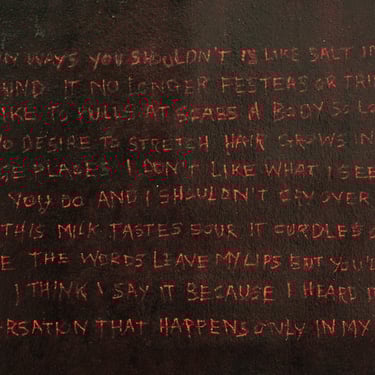 NY WAYS YOU SHOULDN'T IS LIKE SALT IN
UND IT NO LONGER FESTERS OR THR
IKE TO PULLS AT SCABS A BODY SO LO
O DESIRE TO STRETCH HAIR GROWS IN
GE PLACES I DON'T LIKE WHAT I SEE
YOU DO AND I SHOULDN'T CRY OVER
THIS MILK TASTES SOUR IT CURDLES
E THE WORDS LEAVE MY LIPS BUT YOU'
I THINK I SAY IT BECAUSE I HEARD I
RSATION THAT HAPPENS ONLY IN MY